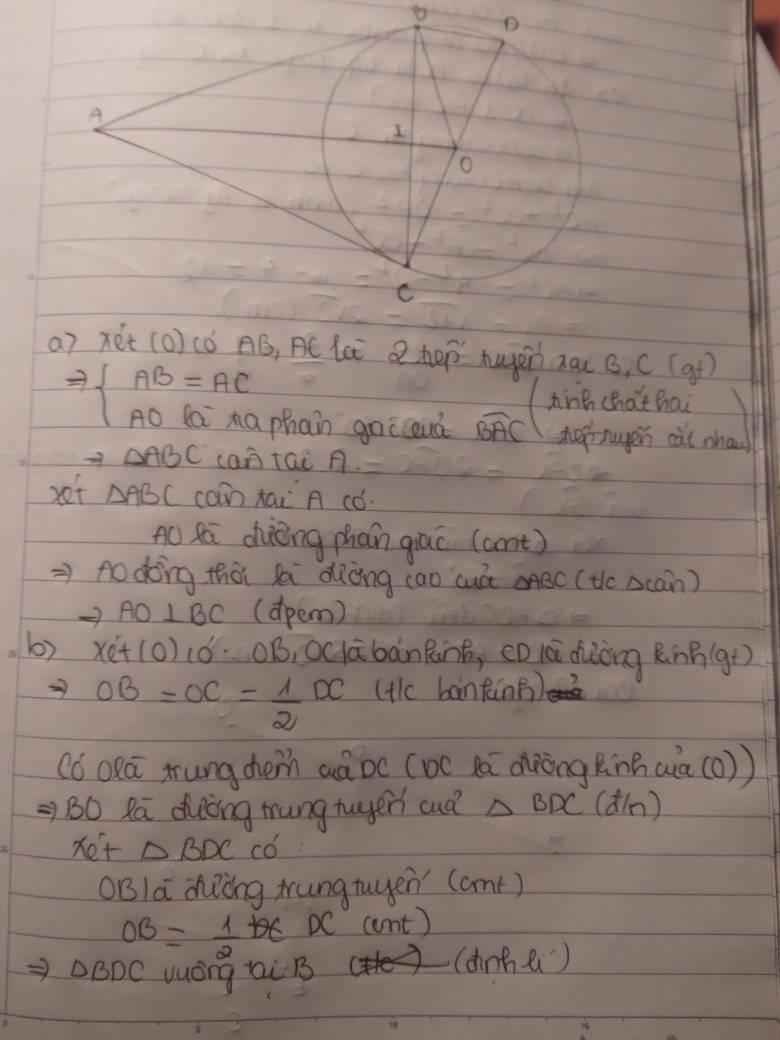 B
D
A
I
O
C
a) Xét (O) có AB, AC là 2 tiếp tuyến tại B, C (gt)
⇒ { AB = AC
AO là tia phân giác của BAC (tính chất hai
tiếp tuyến cắt nhau)
⇒ ΔABC cân tại A.
Xét ΔABC cân tại A có.
AO là đường phân giác (cmt)
⇒ AO đồng thời là đường cao của ΔABC (t/c Δcân)
⇒ AO ⊥ BC (đpcm)
b) Xét (O) có: OB, OC là bán kính, CD là đường kính (gt)
⇒ OB = OC = 1/2 DC (t/c bán kính)
Có O là trung điểm của DC (DC là đường kính của (O))
⇒ BO là đường trung tuyến của Δ BDC (đ/n)
Xét Δ BDC có:
OB là đường trung tuyến (cmt)
OB = 1/2 DC (cmt)
⇒ ΔBDC vuông tại B (định lí)